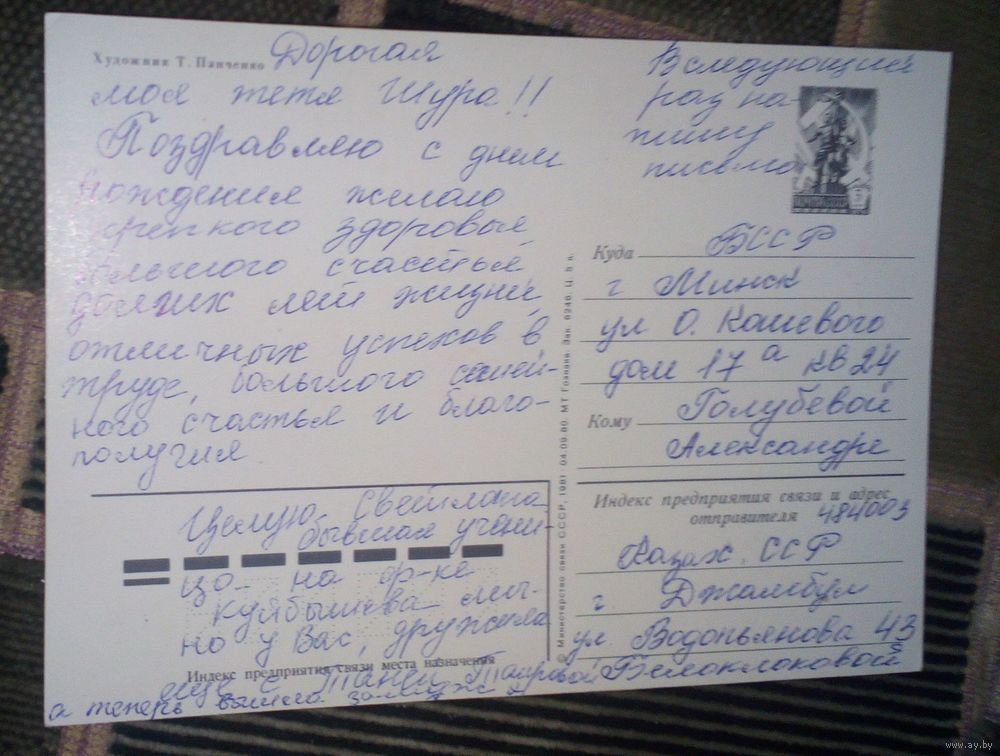 Художник Т. Панченко
Дорогая
моя тетя Шура!!
Поздравляю с днем
рождения желаю
крепкого здоровья,
большого счастья,
долгих лет жизни,
отличных успехов в
труде, большого семей-
ного счастья и благо-
получия.
Целую Светлана
бывшая учени-
ца на ф-ке
Куйбышева
но у Вас, дружила
еще с Таней
а теперь вышла замуж
Индекс предприятия связи места назначения
В следующий
раз на-
пишу
письмо
© Министерство связи СССР, 1981 04.09.80. МТ Гознака. Зак.
Куда БССР
г Минск
ул О. Кошевого
дом 17 а кв 24
Кому Голубевой
Александре
Индекс предприятия связи и адрес
отправителя 484003
Казах. ССР
г. Джамбул
ул. Водопьянова 43
Белоклоковой
www.ay.by